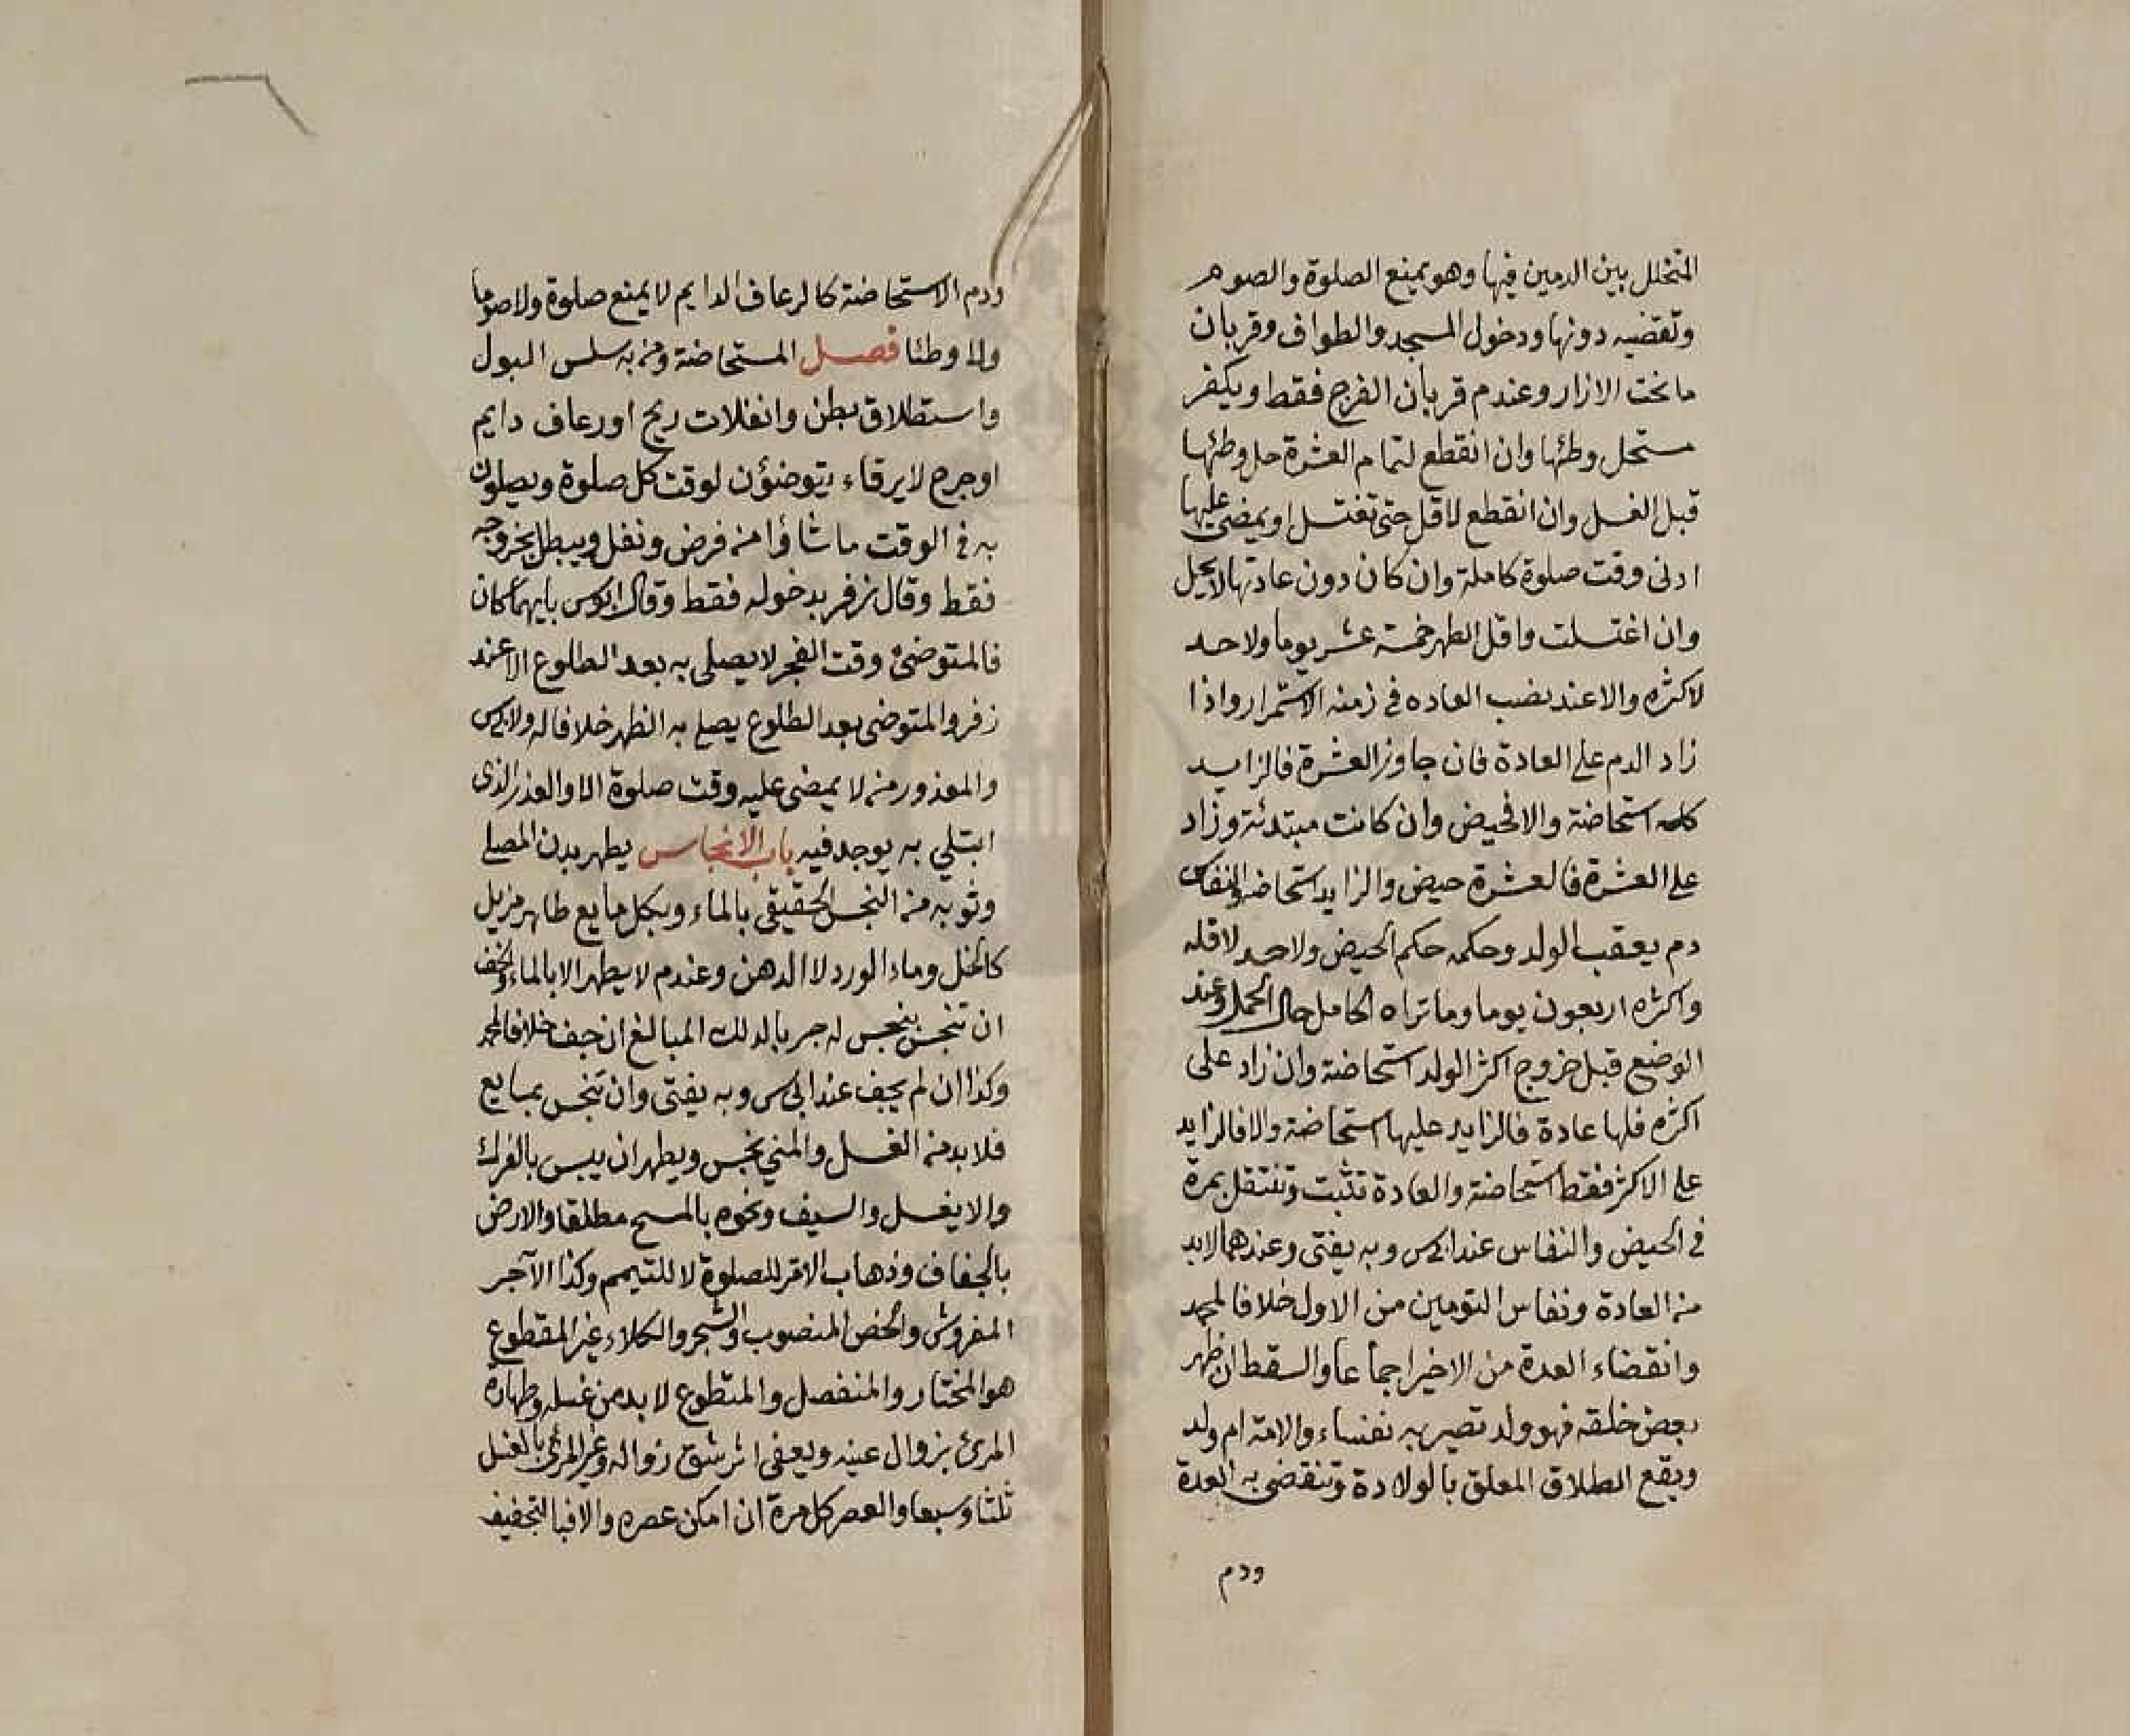 المتخلل بين الدمين فيها وهو يمنع الصلوة والصوم
وتقضيه دونها ودخول المسجد والطواف وقربان
ما تحت الازار وعندم قربان الفرج فقط ويكفر
مستحل وطئها وان انقطع لتمام العشرة حل وطئها
قبل الغسل وان انقطع لاقل حتى تغتسل او يمضي عليها
ادنى وقت صلوة كاملة وان كان دون عادتها لا يحل
وان اغتسلت واقل الطهر خمسة عشر يوما ولا حد
لاكثره والا عند نصب العاده في زمنه الاستمرار واذا
زاد الدم على العادة فان جاوز العشرة فالزايد
كله استحاضة والا فحيض وان كانت مبتدئة وزاد
على العشرة فالعشرة حيض والزايد استحاضة والنفاس
دم يعقب الولد وحكمه حكم الحيض ولا حد لاقله
واكثره اربعون يوما وما تراه الحامل حال الحمل وعند
الوضع قبل خروج اكثر الولد استحاضة وان زاد على
اكثره فلها عادة فالزايد عليها استحاضة والا فالزايد
على الاكثر فقط استحاضة والعادة تثبت وتنتقل بمرة
في الحيض والنفاس عند ابي س وبه يفتى وعندهما لا بد
منه العادة ونفاس التومين من الاول خلافا لمحمد
وانقضاء العدة من الاخير اجماعا والسقط ان ظهر
بعض خلقه فهو ولد تصير به نفساء والامة ام ولد
ويقع الطلاق المعلق بالولادة وتنقضي به العدة
ودم
ودم الاستحاضة كالرعاف الدايم لا يمنع صلوة ولا صوما
ولا وطئا فصل المستحاضة ومن به سلس البول
واستطلاق بطن وانفلات ريح او رعاف دايم
او جرح لا يرقاء يتوضؤن لوقت كل صلوة ويصلون
به في الوقت ما شاؤا منه فرض ونفل ويبطل بخروجه
فقط وقال زفر بدخوله فقط وقال ابوس بايهما كان
فالمتوضئ وقت الفجر لا يصلى به بعد الطلوع الا عند
زفر والمتوضى بعد الطلوع يصلي به الظهر خلافا له ولابي س
والمعذور منه لا يمضى عليه وقت صلوة الا والعذر الذي
ابتلي به يوجد فيه باب الانجاس يطهر بدن المصلي
وثوبه منه النجس الحقيقي بالماء وبكل مايع طاهر مزيل
كالخل وماء الورد لا الدهن وعندم لا يطهر الا بالماء والخف
ان تنجس بنجس له جرم بالدلك المبالغ ان جف خلافا لمحمد
وكذا ان لم يجف عند ابي س وبه يفتى وان تنجس بمايع
فلا بد منه الغسل والمني نجس ويطهر ان يبس بالفرك
والا يغسل والسيف ونحوه بالمسح مطلقا والارض
بالجفاف وذهاب الاثر للصلوة لا للتيمم وكذا الآجر
المفروش والخص المنصوب والشجر والكلاء غير المقطوع
هو المختار والمنفصل والمتطوع لا بد من غسله وطهارة
المرئ بزوال عينه ويعفى اثر شق زواله وغير المرئى بالغسل
ثلثا وسبعا والعصر كل مرة ان امكن عصره والا فبالتجفيف